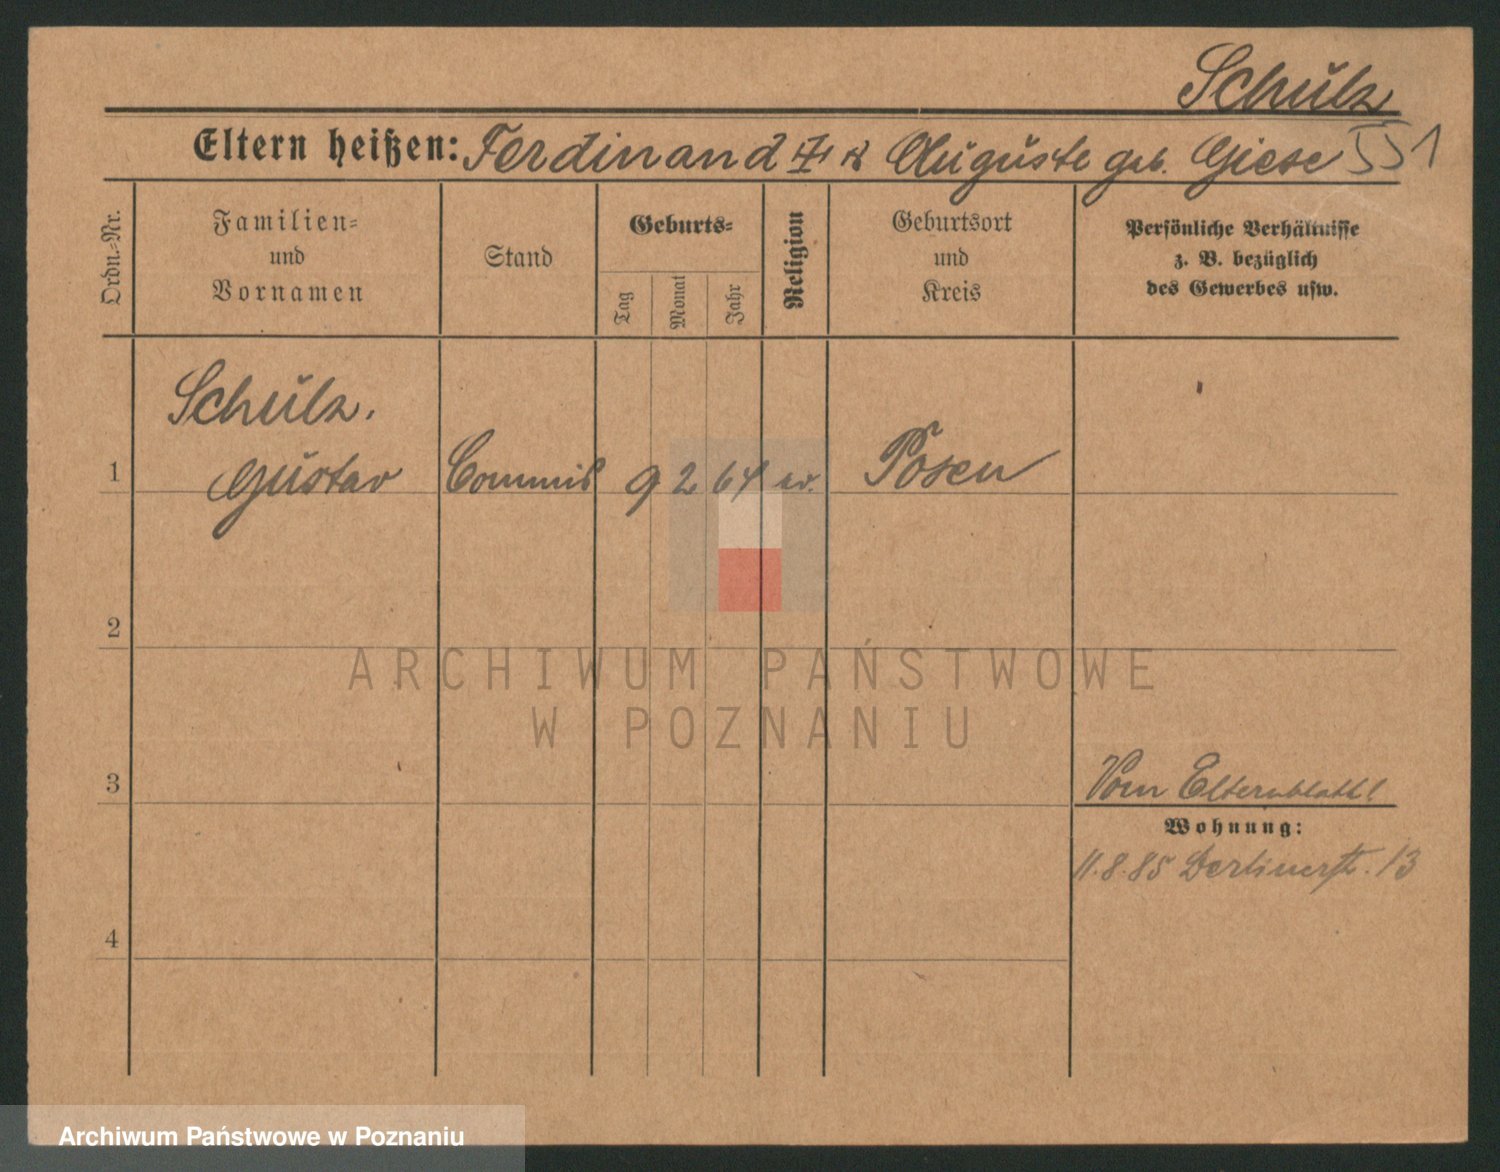 Schulz
Eltern heißen: Ferdinand u. Auguste geb. Giese 551
Ordn.-Nr.
Familien-
und
Vornamen
Stand
Geburts-
Tag
Monat
Jahr
Religion
Geburtsort
und
Kreis
Persönliche Verhältnisse
z. B. bezüglich
des Gewerbes usw.
Schulz.
1 Gustav Commis 9 2 64 ev. Posen
2
ARCHIWUM PAŃSTWOWE
W POZNANIU
3 Vom Elternblatt!
Wohnung:
11.8.85 Berlinerstr. 13
4
Archiwum Państwowe w Poznaniu